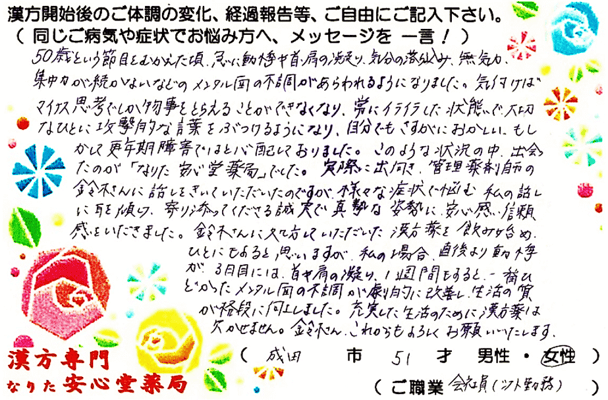 漢方開始後のご体調の変化、経過報告等、ご自由にご記入下さい。
（ 同じご病気や症状でお悩み方へ、メッセージを 一言！）
50歳という節目をむかえた頃、急に動悸や首・肩の凝り、気分の落込み、無気力、
集中力が続かないなどのメンタル面の不調があらわれるようになりました。気付けば
マイナス思考でしか物事をとらえることができなくなり、常にイライラした状態で大切
なひとに攻撃的な言葉をぶつけるようになり、自分でもさすがにおかしい、もし
かして更年期障害ではと心配しておりました。このような状況の中、出会っ
たのが「なりた安心堂薬局」でした。実際に出向き、管理薬剤師の
鈴木さんに話しをきいていただいたのですが、様々な症状で悩む 私の話し
に耳を傾け、寄り添ってくださる誠実で真摯な姿勢に、安心感、信頼
感をいだきました。鈴木さんに処方していただいた漢方薬を飲み始め、
ひとにもよると思いますが、私の場合、直後より動悸
が、3日目には、首や肩の凝り、1週間もすると、一番ひ
どかったメンタル面の不調が劇的に改善し、生活の質
が格段に向上しました。充実した生活のために漢方薬は
欠かせません。鈴木さん、これからもよろしくお願いいたします。
（ 成田 市 51 才 男性・女性）
漢方専門
なりた 安心堂薬局
（ご職業 会社員（シフト勤務）